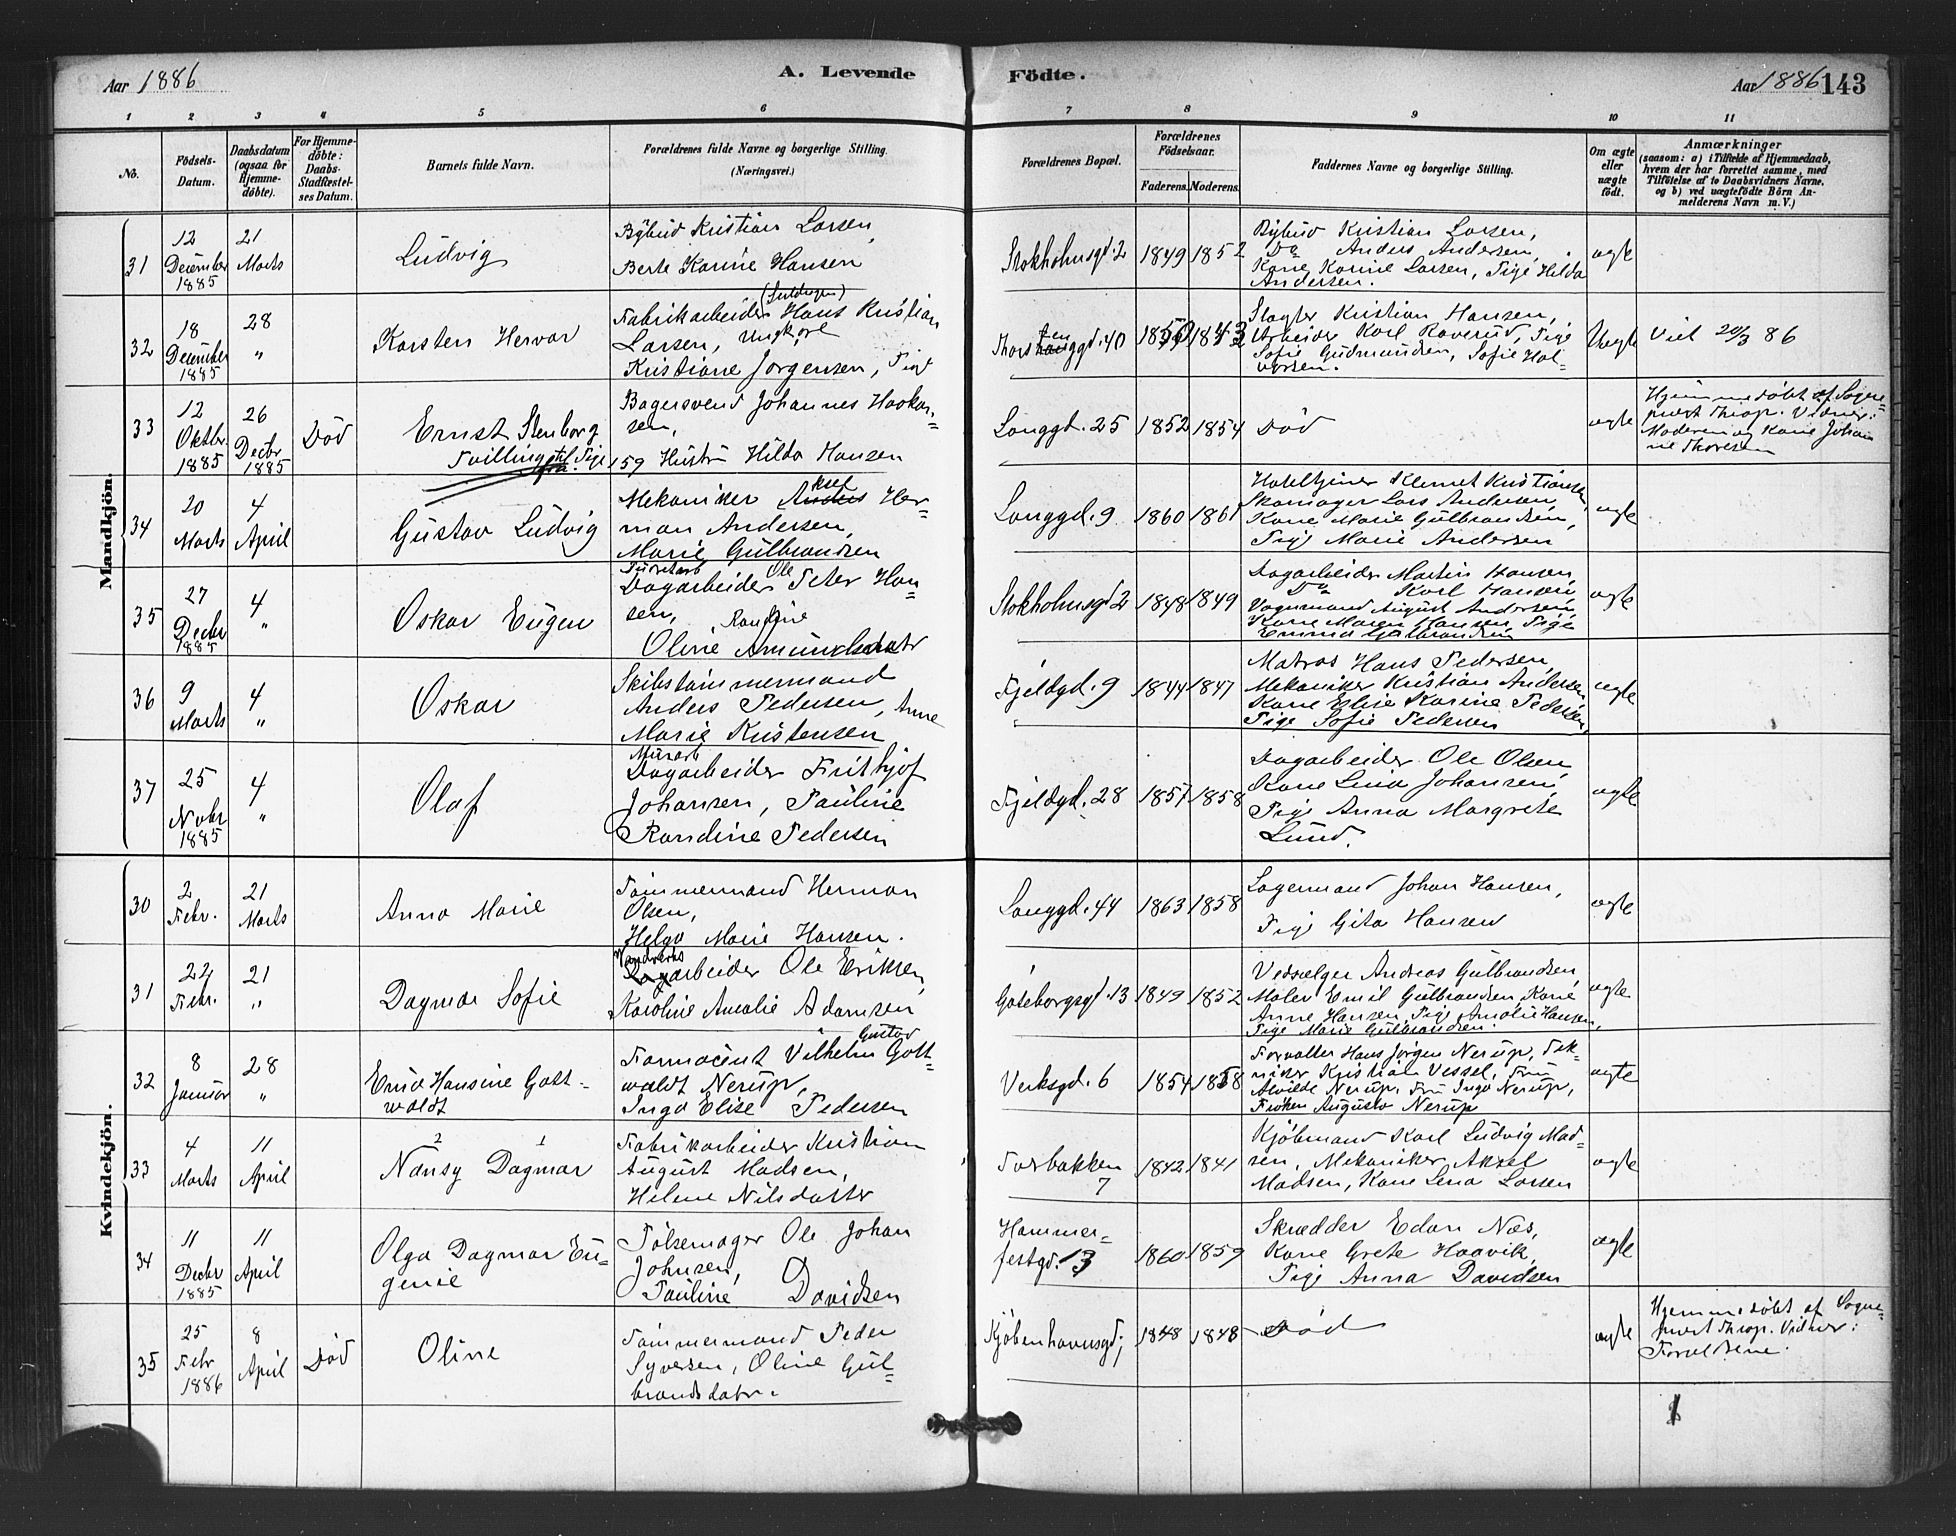 Aar 1886
A. Levende
Födte.
Aar 1886 143
1 2 3 4 5 6 7 8 9 10 11
No.
Födsels-
Datum.
Daabsdatum
(ogsaa for
Hjemme-
döbte).
For Hjemme-
döbte:
Daabs-
Stadfæstel-
ses Datum.
Barnets fulde Navn.
Forældrenes fulde Navne og borgerlige Stilling.
(Næringsvei.)
Forældrenes Bopæl.
Forældrenes
Födselsaar.
Faderens. Moderens.
Faddernes Navne og borgerlige Stilling.
Om ægte
eller
uægte
födt.
Anmærkninger
(saasom: a) i Tilfælde af Hjemmedaab,
hvem der har forrettet samme, med
Tilföielse af to Daabsvidners Navne,
og b) ved uægtefödte Börn An-
melderens Navn m. V.)
Mandkjön.
31
12
December
1885
21
Marts
Ludvig
Bybud Kristian Larsen,
Berte Karine Hansen
Stokholmsgd. 2
1849 1852
Bybud Kristian Larsen,
Do Anders Andersen,
Kone Karine Larsen, Pige Hilda
Andersen.
ægte
32
18
December
1885
28
"
Karsten Hervar
Fabrikarbeider Hans Kristian
Larsen, Ungkarl
Kristiane Jørgensen, Pige
Thorstengd. 40
1850 1843
Slagter Kristian Hansen,
Arbeider Karl Raverud, Pige
Sofie Gudmundsen, Sofie Hal-
vorsen.
Uægte
Viet 20/3 86
33
12
Oktbr.
1885
26
Decbr
1885
Død
Ernst Stenborg
Tvilling til Pige
159
Bagersvend Johannes Haakon-
sen,
Hustru Hilda Hansen
Langgd. 25
1852 1854
Død
ægte
Hjemmedøbt af Sogne-
prest Throp. Vidner:
Moderen og Kone Johan
ne Thoresen
34
20
Marts
4
April
Gustav Ludvig
Mekaniker Anders Her-
man Andersen,
Marie Gulbrandsen
Langgd. 9
1860 1861
Hoteltjener Klemet Kristiansen,
Skomager Lars Andersen,
Kone Marie Gulbrandsen,
Pige Marie Andersen
ægte
35
27
Decbr
1885
4
"
Oskar Eugen
Dagarbeider Ole Peter Han-
sen,
Randine
Oline Amundsdatr
Stokholmsgd 2
1848 1849
Dagarbeider Martin Hansen,
Do Karl Hansen,
Vognmand August Andersen,
Kone Maren Hansen, Pige
Emma Gulbrandsen
ægte
36
9
Marts
4
"
Oskar
Skibstømmermand
Anders Pedersen, Anne
Marie Kristensen
Fjeldgd. 9
1844 1847
Matros Hans Pedersen,
Mekaniker Kristian Andersen,
Kone Elise Karine Pedersen,
Pige Sofie Pedersen
ægte
37
25
Novbr
1885
4
"
Olaf
Murarb
Dagarbeider Frithjof
Johansen, Pauline
Randine Pedersen
Fjeldgd. 28
1857 1858
Dagarbeider Ole Olsen
Kone Lina Johansen,
Pige Anna Margrete
Lund.
ægte
Kvindekjön.
30
2
Febr.
21
Marts
Anna Marie
Tømmermand Herman
Olsen,
Helga Marie Hansen.
Langgd. 44
1863 1858
Lagermand Johan Hansen,
Pige Gita Hansen
ægte
31
22
Febr.
21
"
Dagmar Sofie
arbeider Ole Eriksen,
Karoline Amalie Adamsen
Gøteborgsgd. 13
1849 1852
Vedsælger Andreas Gulbrandsen,
Maler Emil Gulbrandsen, Kone
Anne Hansen, Pige Amalie Hansen,
Pige Marie Gulbrandsen.
ægte
32
8
Januar
28
"
Hansine Gott-
waldt
Farmacent Vilhelm Gustav Gott-
waldt Nerup,
Inga Elise Pedersen
Verksgd. 6
1854 1858
Forvalter Hans Jørgen Nerup, Tek-
niker Kristian Vessel, Fru
Alvilde Nerup, Fru Inga Nerup,
Frøken Augusta Nerup
ægte
33
4
Marts
11
April
2 1
Nansy Dagmar
Fabrikarbeider Kristian
August Madsen,
Helene Nilsdatter
Torbakken
7
1842 1841
Kjøbmand Karl Ludvig Mad-
sen, Mekaniker Aksel
Madsen, Kone Lena Larsen
ægte
34
11
Decbr
1885
11
April
Olga Dagmar Eu-
genie
Pølsemager Ole Johan
Johnsen,
Pauline Davidsen
Hammer-
festgd. 13
1860 1859
Skrædder Edan Næs,
Kone Grete Haavik,
Pige Anna Davidsen
ægte
35
25
Febr
1886
8
April
Død
Oline
Tømmermand Peder
Syversen, Oline Gul-
brandsdatr.
Kjøbenhavnsgd;
1848 1848
Død
ægte
Hjemmedøbt af Sogne-
prest Throp. Vidner:
Forældrene.